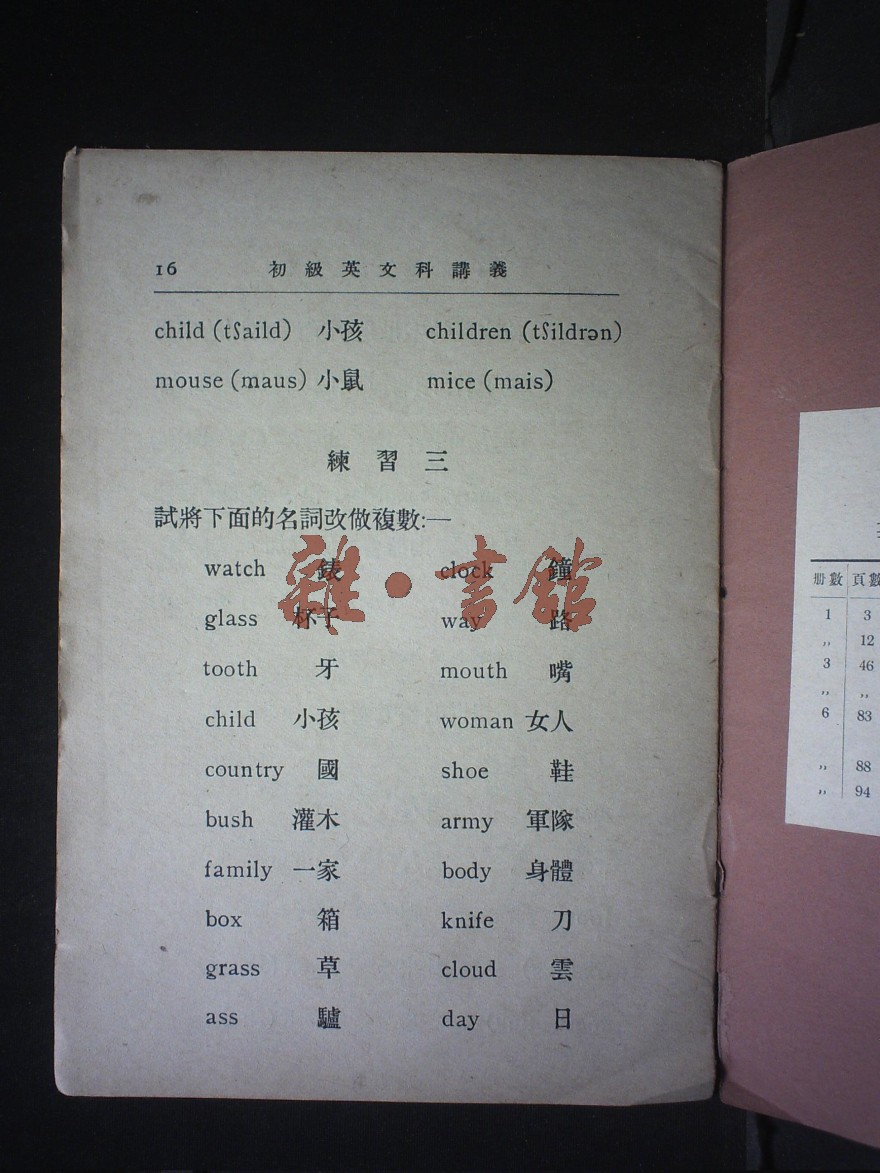 16 初級英文科講義
child (tʃaild) 小孩 children (tʃildrən)
mouse (maus) 小鼠 mice (mais)
練習三
試將下面的名詞改做複數:—
watch 錶 clock 鐘
glass 杯子 way 路
tooth 牙 mouth 嘴
child 小孩 woman 女人
country 國 shoe 鞋
bush 灌木 army 軍隊
family 一家 body 身體
box 箱 knife 刀
grass 草 cloud 雲
ass 驢 day 日
雜·書館
册數 頁數
1 3
,, 12
3 46
,, ,,
6 83
,, 88
,, 94